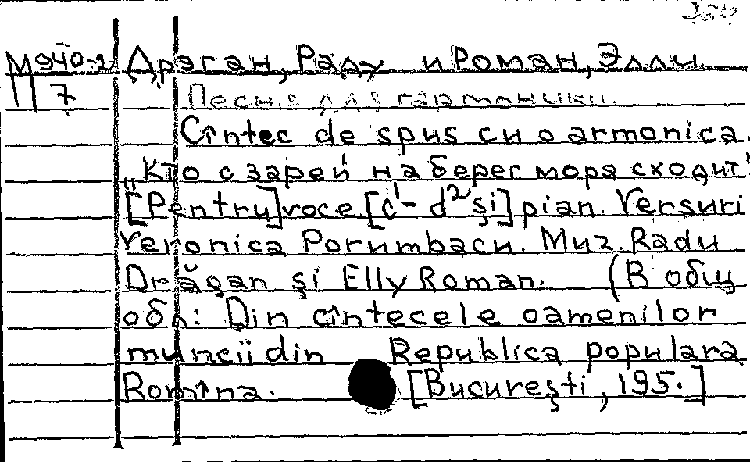 М940-2 Драган, Раду и Роман, Элли.
11 7 Песня для гармоники.
Cîntec de spus cu o armonica.
„Кто с зарей на берег моря сходит"
[Pentru] voce [c¹- d² și] pian. Versuri
Veronica Porumbacu. Muz. Radu
Drăgan și Elly Roman. (В общ
обл: Din cîntecele oamenilor
muncii din Republica populara
Romîna. [București, 195.]